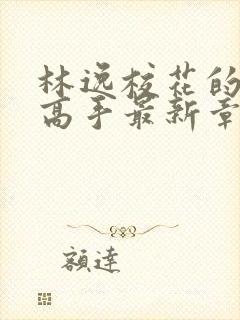 林逸校花的
高手最新章
額達